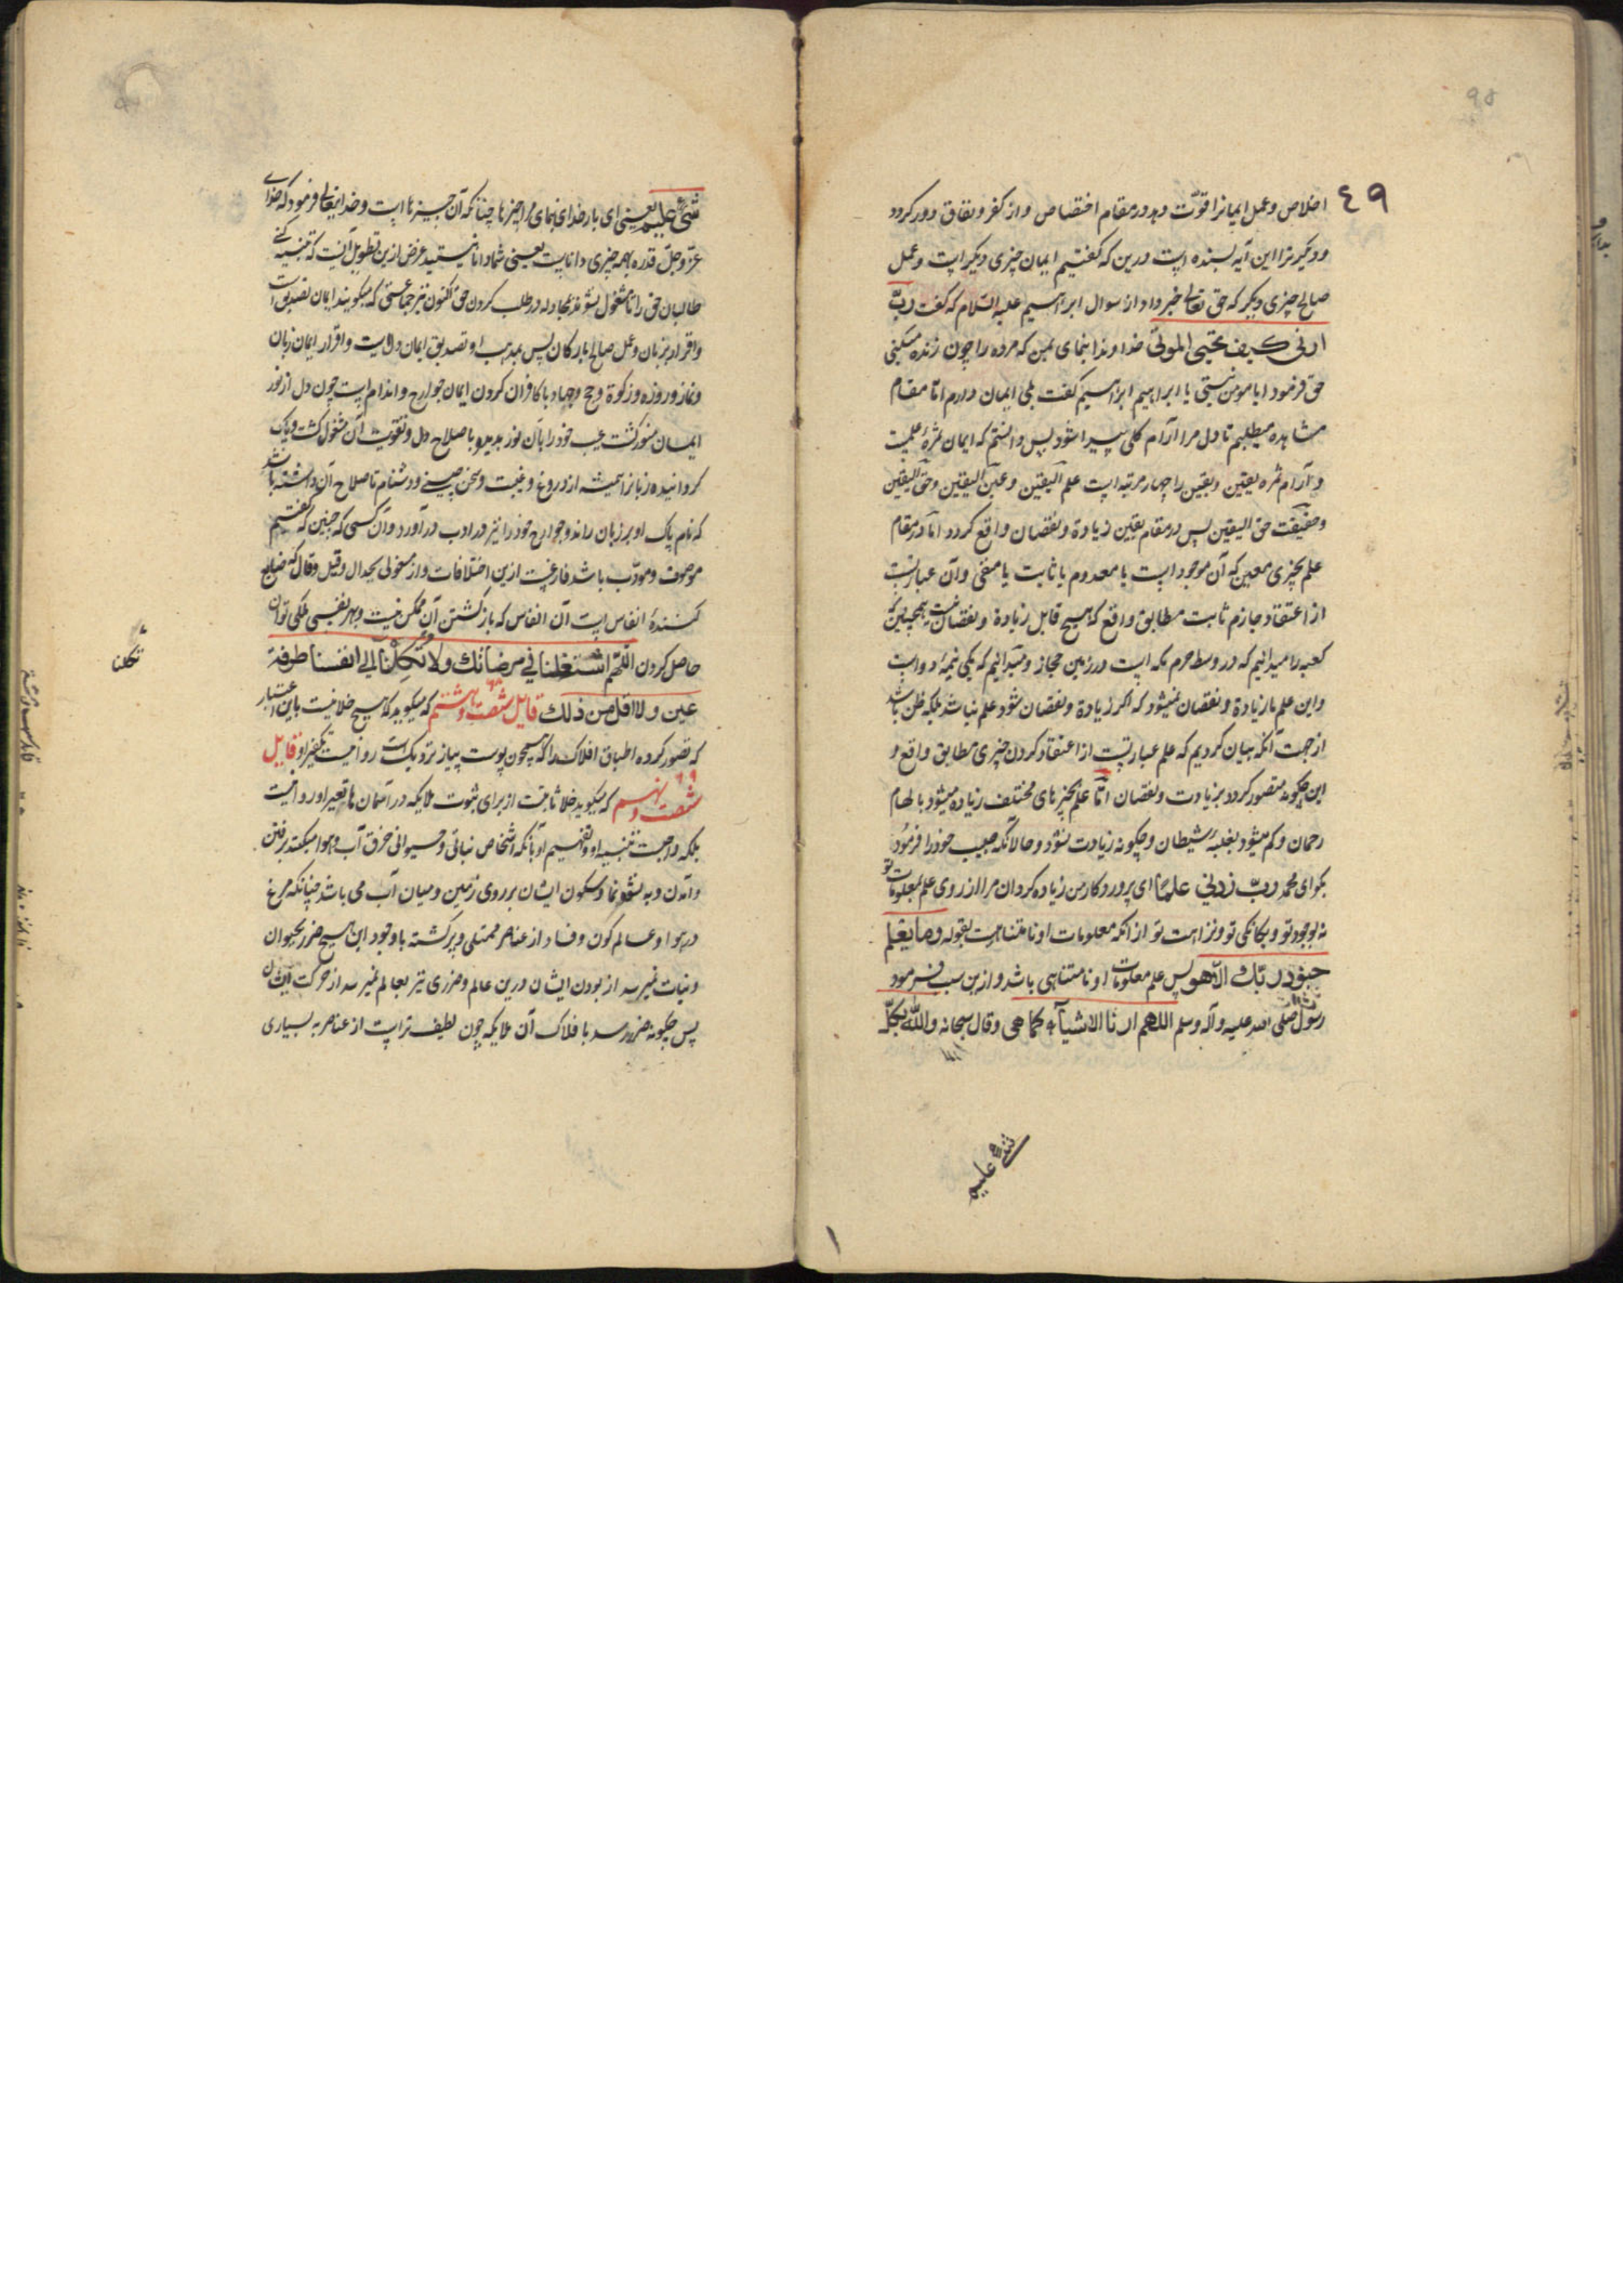 ٤٩
اخلاص و عمل ایمانرا قوّت دهد در مقام اختصاص و از کفر و نفاق دور گردد
و دیگر ترا این آیه بسنده است درین که گفتیم ایمان چیزی دیگر است و عمل
صالح چیزی دیگر که حق تعالی خبر داد از سوال ابراهیم علیه السّلام که گفت ربّ
ارنی کیف تحیی الموتی خداوندا بنمای بمن که مرده را چون زنده میکنی
حق فرمود ایا مومن نیستی یا ابراهیم ابراهیم گفت بلی ایمان دارم امّا مقام
مشاهده میطلبم تا دل مرا آرام کلی پیدا شود پس دانستم که ایمان ثمرهٔ علمست
و آرام ثمره یقین و یقین را چهار مرتبه است علم الیقین و عین الیقین و حق الیقین
و حقیقت حق الیقین پس در مقام یقین زیادة و نقصان واقع گردد امّا در مقام
علم بچیزی معین که آن موجود است یا معدوم یا ثابت یا منفی و آن عبارتست
از اعتقاد جازم ثابت مطابق واقع که هیچ قابل زیادة و نقصان نیست همچنین که
کعبه را میدانیم که در وسط حرم مکه است در زمین حجاز و میدانیم که یکی نیمهٔ دو است
و این علم ما زیادة و نقصان نمیشود که اگر زیادة و نقصان شود علم نباشد بلکه ظن باشد
از جهت آنکه بیان کردیم که علم عبارتست از اعتقاد کردن چیزی مطابق واقع و
این چگونه متصور گردد بزیادت و نقصان امّا علم بچیزهای مختلف زیاده میشود بالهام
رحمان و کم میشود بغلبهٔ شیطان و چگونه زیادت نشود و حال آنکه حبیب خود را فرمود
بگو ای محمد ربّ زدنی علمًا ای پروردکار من زیاده گردان مرا از روی علم بمعلومات تو
نه بوجود تو و یکانگی تو و نزاهت تو از آنکه معلومات او نا متناهیست بقوله وما یعلم
جنود ربّك الّا هو پس علم معلومات او نا متناهی باشد و ازین سبب فرمود
رسول الله صلی الله علیه وآله وسلم اللهم ارنا الاشیآء کما هی وقال سبحانه والله بکلّ
شیء علیم
شیء علیم یعنی ای بار خدای بنمای مرا چیزها چنانکه آن چیزها است و خدایتعالی فرمود که خدای
عزّ وجلّ قدره بهمه چیزی دانایست یعنی شما دانا نیستید غرض ازین تطویل آنست که تنبیه کنی
طالبان حق را تا مشغول نشوند بمجادله در طلب کردن حق اکنون نیز جماعتی که میگویند ایمان تصدیق است
و اقرار بزبان و عمل صالح بارکان پس بمذهب او تصدیق ایمان دلست و اقرار ایمان زبان
و نماز و روزه و زکوة و حج و جهاد با کافران کردن ایمان جوارح و اندام است چون دل از نور
ایمان منور گشت عیب خود را بآن نور بدید و باصلاح دل و تقویت آن مشغول گشت و پاک
گردانیده زبانرا همیشه از دروغ و غیبت و سخن چینی و دشنام تا صلاح آن داشته باشد
که نام پاک او بر زبان راند و جوارح خود را نیز در ادب درآورد و آن کسی که چنین که گفتیم
موصوف و مودّب باشد فارغست ازین اختلافات و از مشغولی بجدال و قیل و قال که ضایع
کنندهٔ انفاس است آن انفاس که بازگشتن آن ممکن نیست و بهر نفسی ملکی توان
حاصل کردن اللّهم اشتغلنا فی مرضاتك ولا تکلنا الی انفسنا طرفة
تکلنا
عین ولا اقل من ذلك قایل شصت و هشتم که میگوید که هیچ خلا نیست باین اعتبار
که تصور کرده اطباق افلاک را که همچون پوست پیاز نزدیک است روا نیست تکفیر او قایل
شصت و نهم که میگوید خلا ثابتست از برای ثبوت ملایکه در آسمان ها تعییر او روا نیست
بلکه واجبست تنبیه او و تفهیم او بآنکه اشخاص نباتی و حیوانی خرق آب و هوا میکنند برفتن
و آمدن و به نشو و نما و سکون ایشان بر روی زمین و میان آب می باشد چنانکه مرغ
در هوا و عالم کون و فساد از عناصر ممتلی و پر گشته با وجود این هیچ ضرر بحیوان
و نبات نمیرسد از بودن ایشان درین عالم و ضرری نیز بعالم نمیرسد از حرکت ایشان
پس چگونه ضرر رسد بافلاک آن ملایکه چون لطیف تر است از عناصر به بسیاری